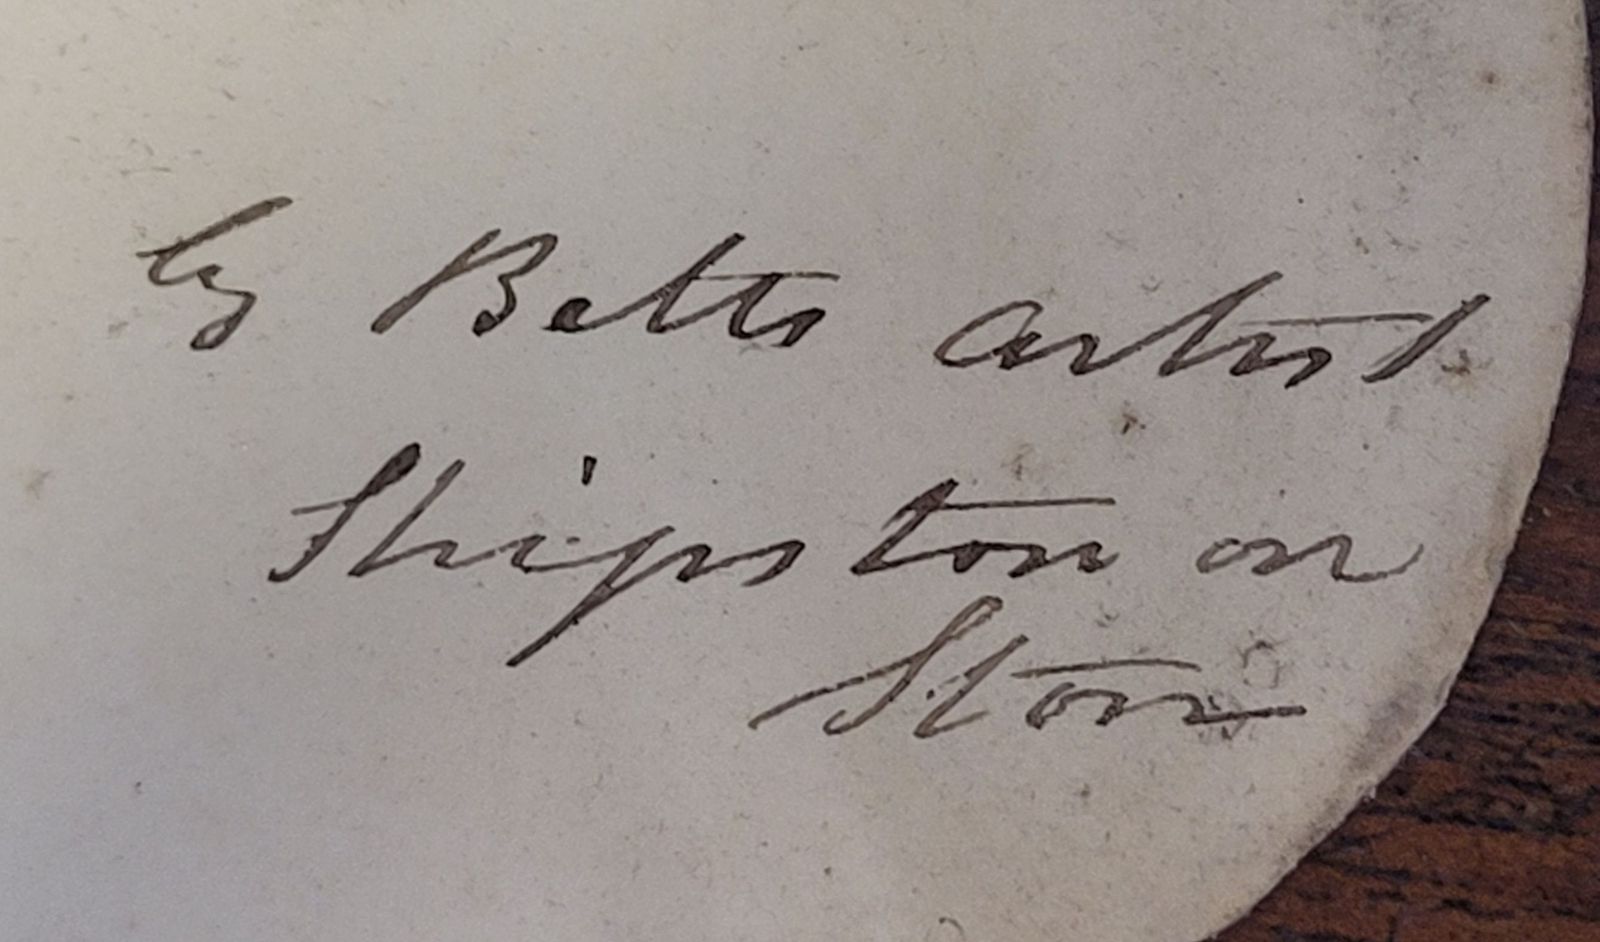 by Betts artist
Shipston on
Stour